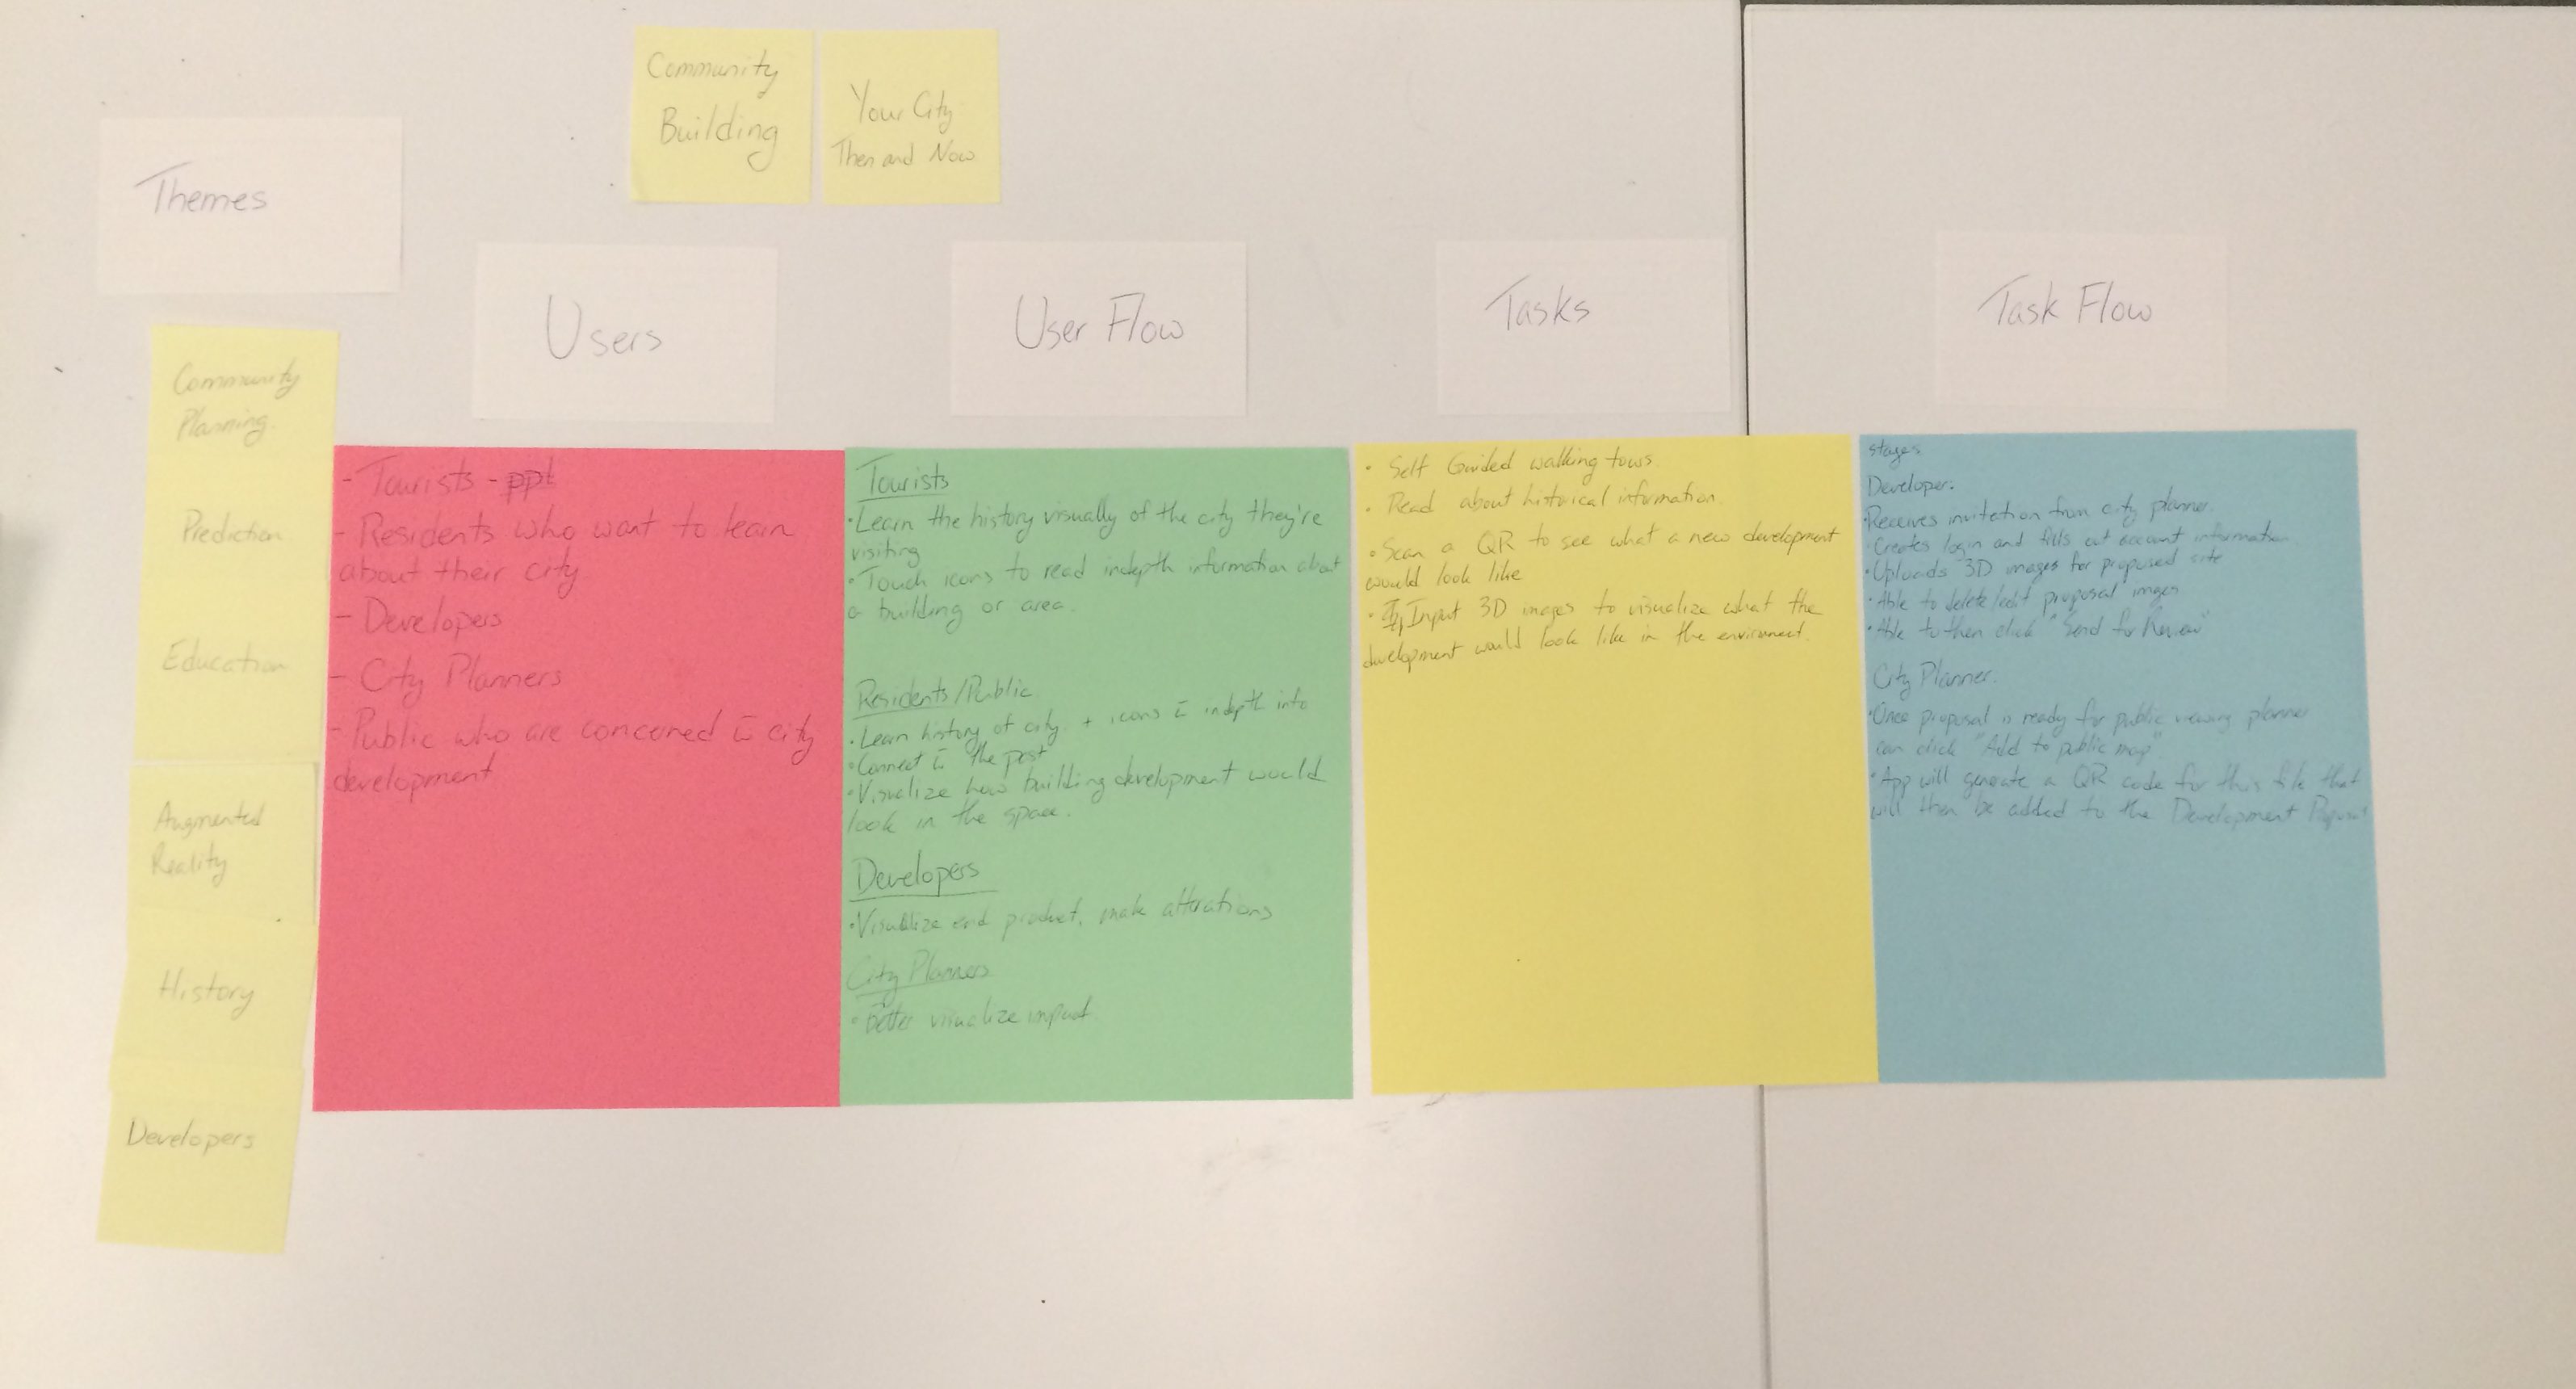 Community
Building
Your City
Then and Now
Themes
Users
User Flow
Tasks
Task Flow
Community
Planning.
Prediction
Education
Augmented
Reality
History
Developers
- Tourists - ppt
- Residents who want to learn
about their city
- Developers
- City Planners
- Public who are concerned c̄ city
development
Tourists
•Learn the history visually of the city they're
visiting
•Touch icons to read indepth information about
a building or area.
Residents/Public
•Learn history of city + icons c̄ indepth into
•Connect c̄ the past
•Visualize how building development would
look in the space.
Developers
•Visualize end product, make alterations
City Planners
•Better visualize impact.
• Self Guided walking tours.
• Read about historical information.
• Scan a QR to see what a new development
would look like
• Input 3D images to visualize what the
development would look like in the environment.
stages
Developer.
•Receives invitation from city planner.
•Creates login and fills out account information
•Uploads 3D images for proposed site
•Able to delete/edit proposal images
•Able to then click "Send for Review"
City Planner.
•Once proposal is ready for public viewing planner
can click "Add to public map"
•App will generate a QR code for this file that
will then be added to the Development Proposal